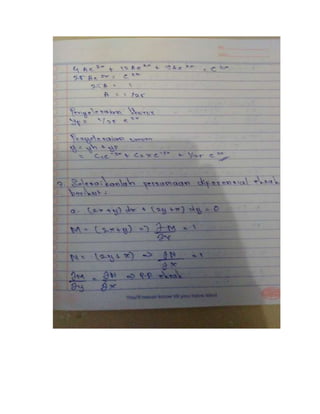 4 Ae²ˣ + 12 Ae²ˣ + 9Ae²ˣ = e²ˣ
25 Ae²ˣ = e²ˣ
25A = 1
A = 1/25
Penyelesaian khusus
yp = 1/25 e²ˣ
Penyelesaian umum
y = yh + yp
= C₁e⁻³ˣ + C₂xe⁻³ˣ + 1/25 e²ˣ
Selesaikanlah persamaan diferensial eksak
berikut :
a. (2x+y) dx + (2y+x) dy = 0
M = (2x+y) => ∂M/∂y = 1
N = (2y+x) => ∂N/∂x = 1
∂M/∂y = ∂N/∂x => P.D eksak
You'll never know till you have tried